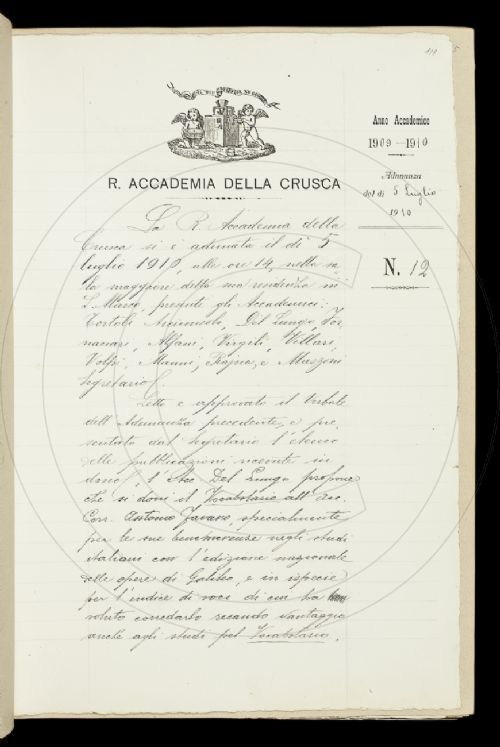 R. ACCADEMIA DELLA CRUSCA
Anno Accademico
1909-1910
Adunanza
del dì 5 luglio
1910
N. 12
La R. Accademia della
Crusca si è adunata il dì 5
luglio 1910, alle ore 14, nella sa-
la maggiore della sua residenza in
S. Marco, presenti gli Accademici:
Tortoli Arciconsolo, Del Lungo, For-
naciari, Alfani, Virgili, Villari,
Volpi, Manni, Rajna, e Mazzoni
Segretario.
Letto e approvato il Verbale
dell'Adunanza precedente, e pre-
sentato dal Segretario l'elenco
delle pubblicazioni ricevute in
dono, l'Acc. Del Lungo propone
che si doni il Vocabolario all'Acc.
Corr. Antonio Favaro, specialmente
per le sue benemerenze negli studi
italiani con l'edizione nazionale
delle opere di Galileo, e in ispecie
per l'indice di voci di cui ha
voluto corredarlo recando vantaggio
anche agli studi pel Vocabolario.